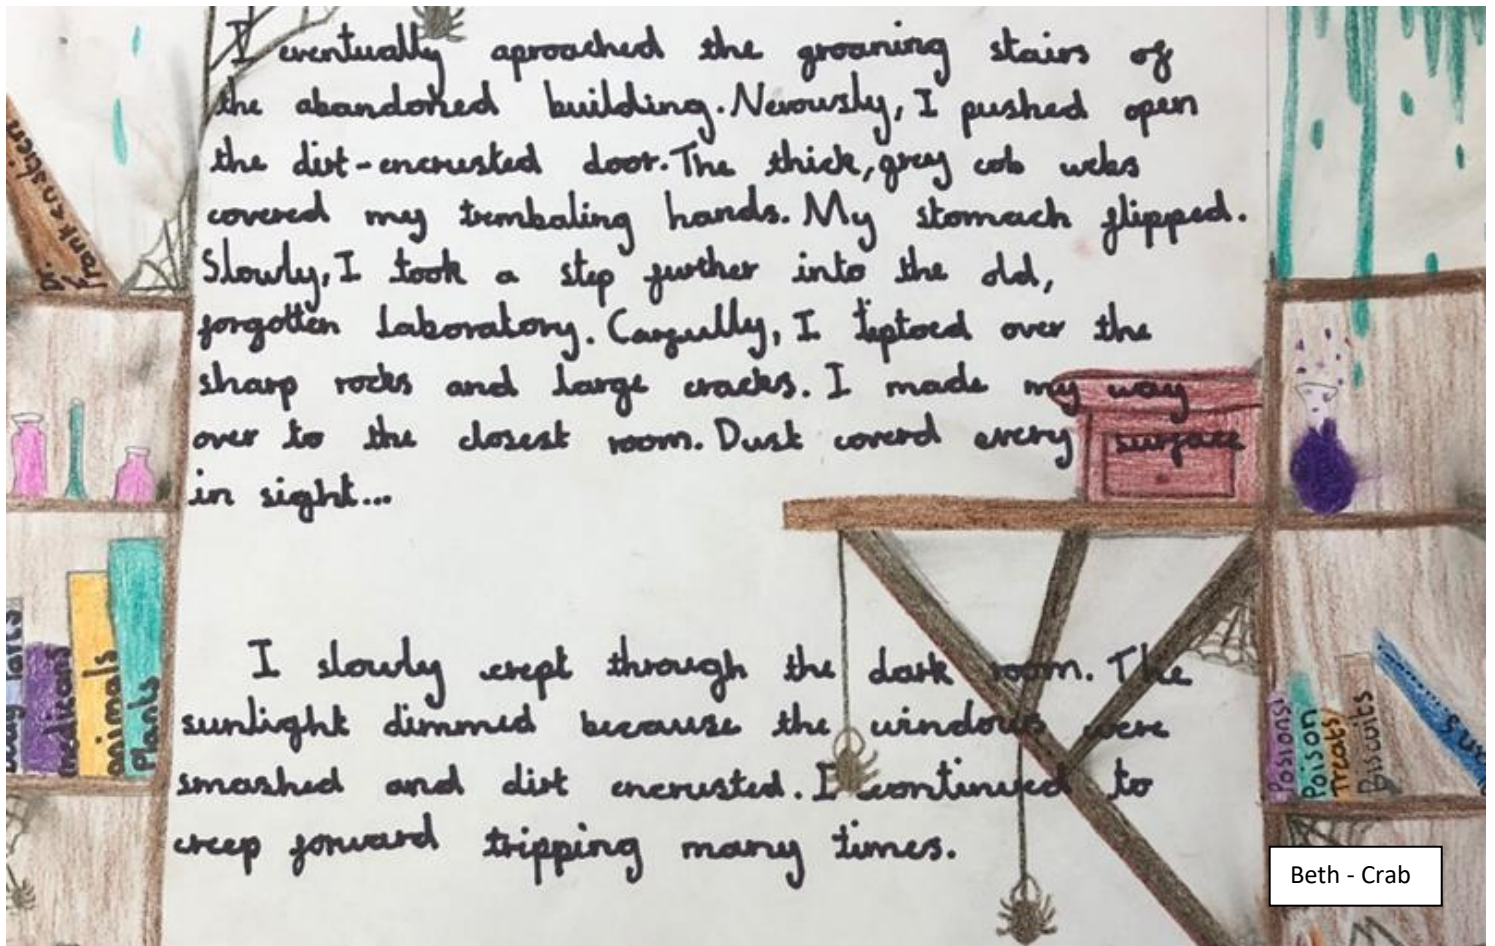 I eventually aproached the groaning stairs of
the abandoned building. Nevously, I pushed open
the dirt-encrusted door. The thick, grey cob webs
covered my trembaling hands. My stomach flipped.
Slowly, I took a step further into the old,
forgotten laboratory. Carfully, I tiptoed over the
sharp rocks and large cracks. I made my way
over to the closest room. Dust coverd every surface
in sight...
I slowly crept through the dark room. The
sunlight dimmed because the windows were
smashed and dirt encrusted. I continued to
creep forward tripping many times.
Dr.
Frankenstien
medicans
animals
Plants
Posions
Poison
Treats
Biscuits
Beth - Crab